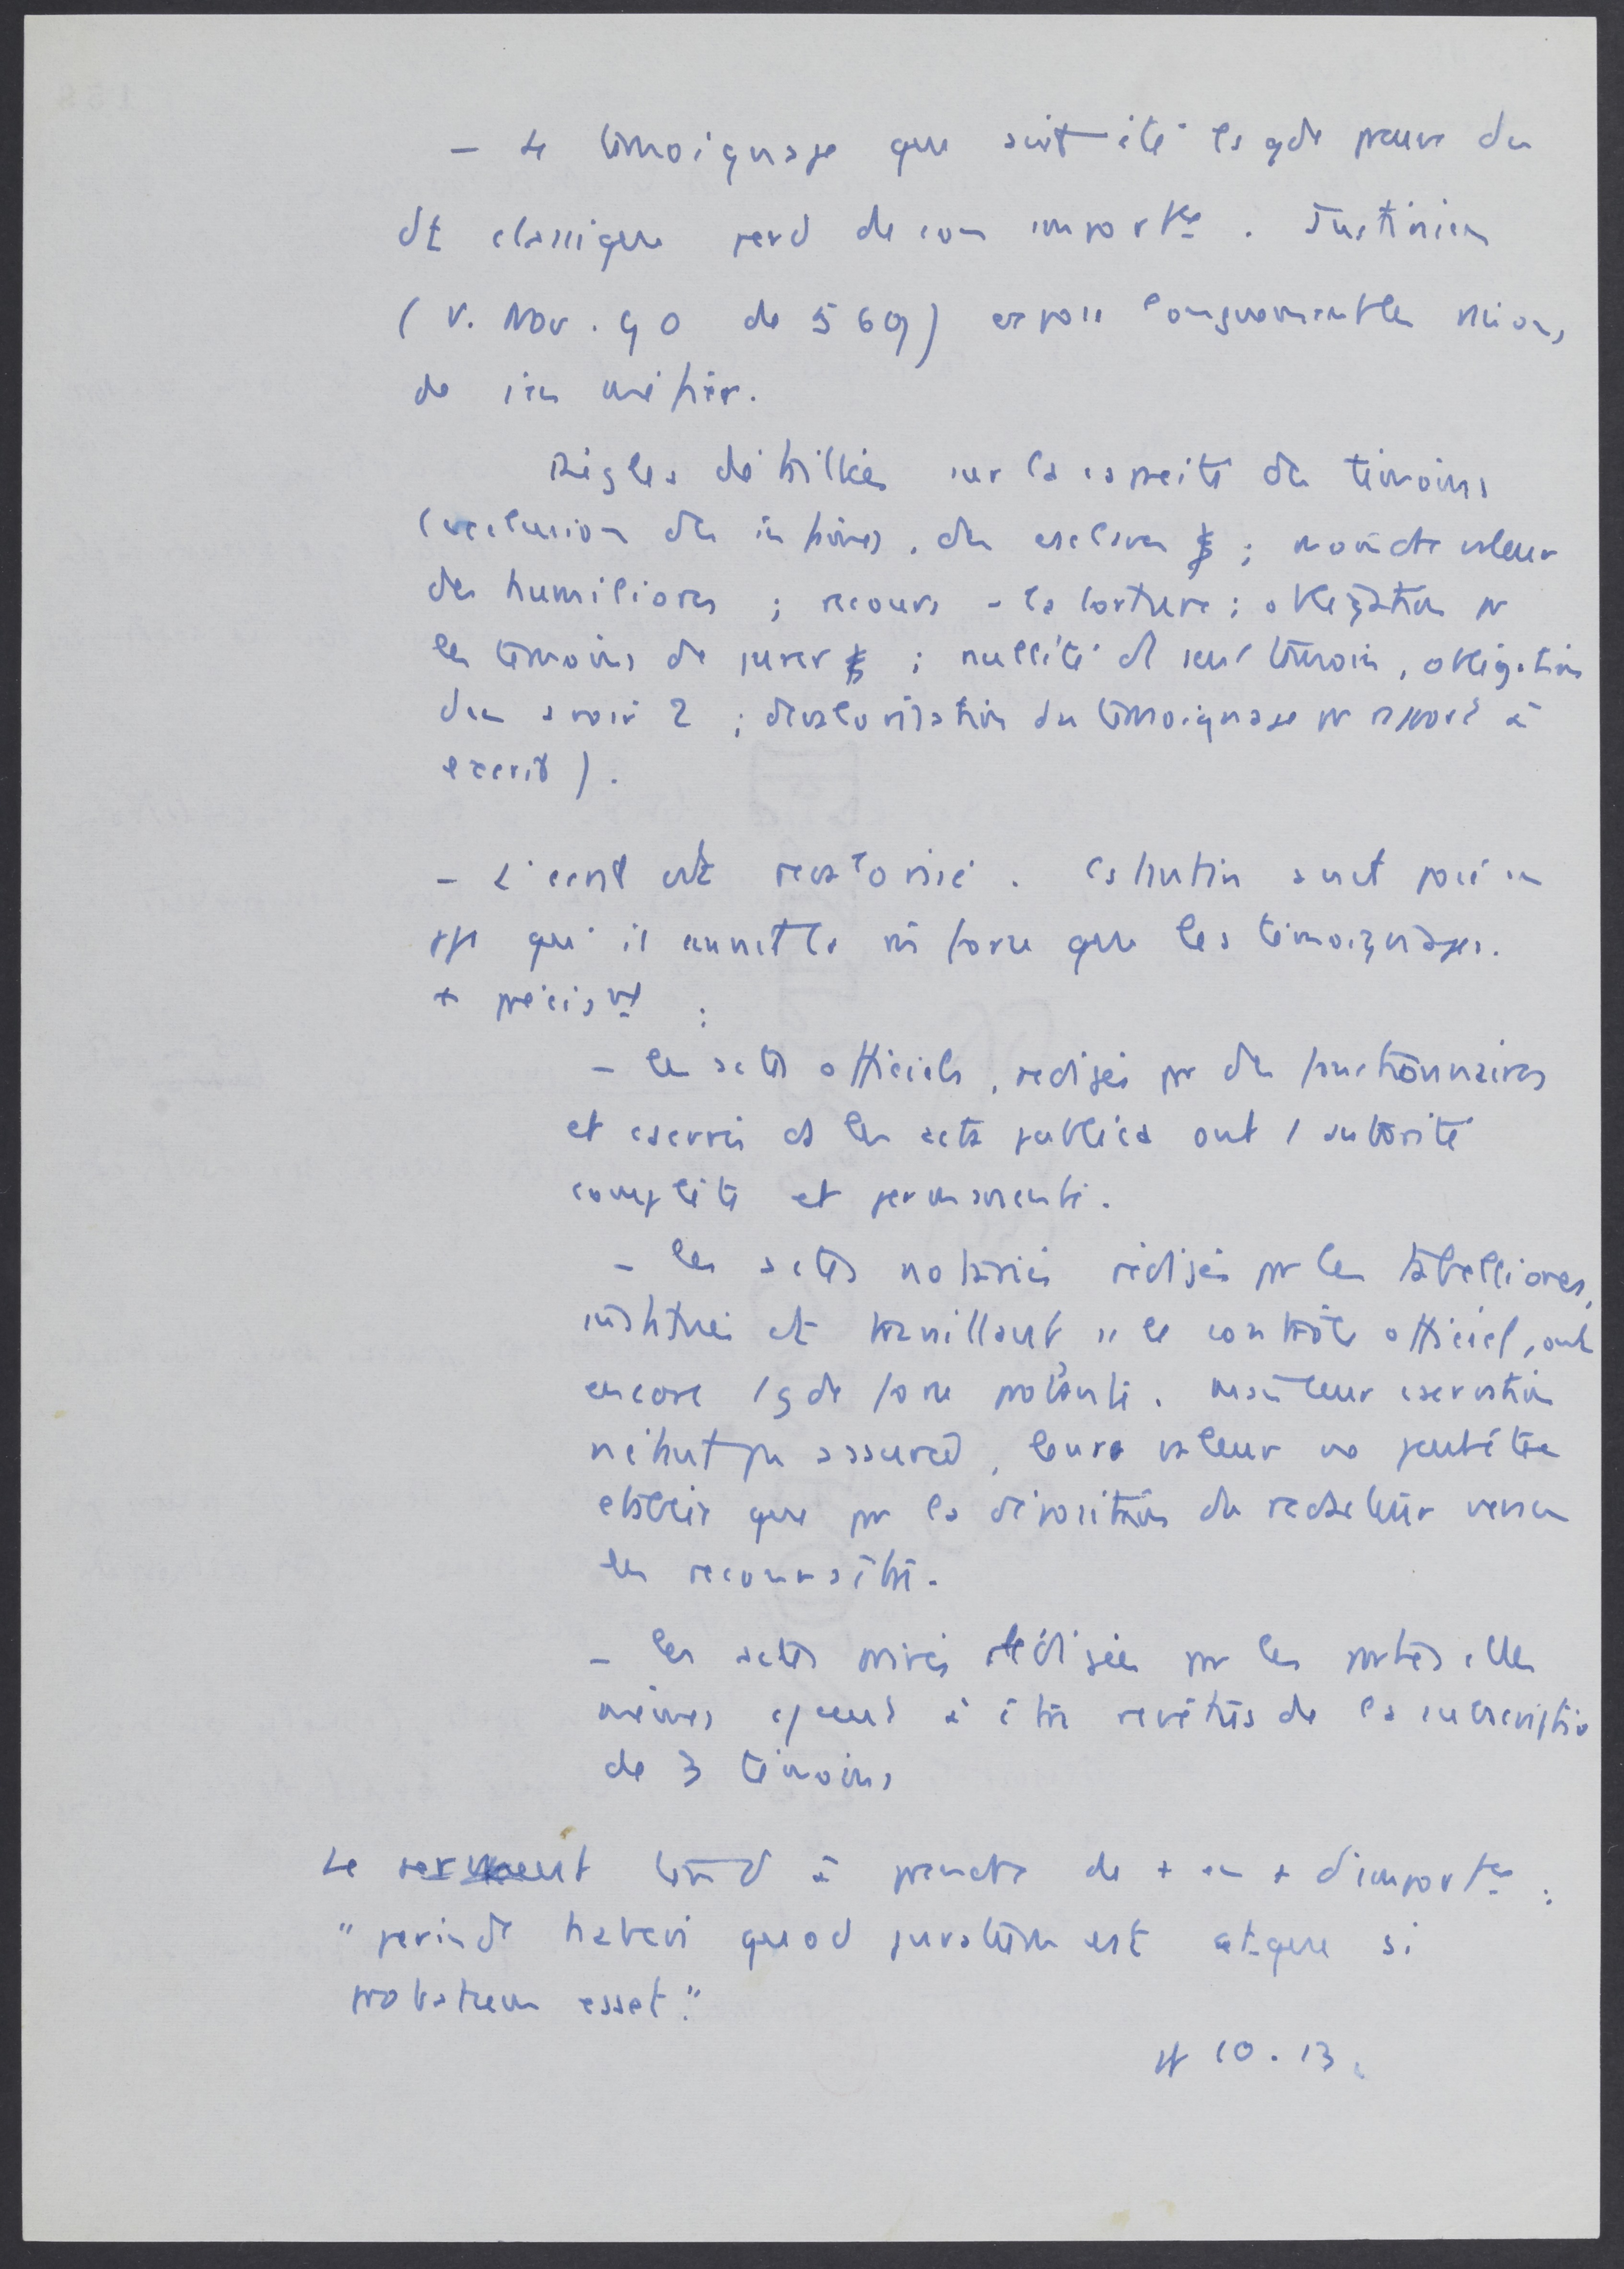 - Le témoignage qui avait été la gde preuve du
dt classique perd de son importce. Justinien
(v. Nov. 90 de 569) expose longuement les raisons
de s'en méfier.
Règles détaillées sur la capacité des témoins
(exclusion des infâmes, des esclaves ; moindre valeur
des humiliores ; recours à la torture ; obligation pr
les témoins de jurer ; nullité du seul témoin, obligation
d'en avoir 2 ; dévalorisation du témoignage pr rapport à
l'écrit).
- L'écrit est revalorisé. Constantin avait posé en
qu'il aurait la m force que les témoignages.
+ précismt :
- les actes officiels, rédigés pr des fonctionnaires
et conservés ds les acta publica ont 1 autorité
complète et permanente.
- les actes notariés rédigés pr les tabelliones,
institués et travaillant ss le contrôle officiel, ont
encore 1 gde force probante. Mais leur conservation
n'étant pas assurée, leur valeur ne peut être
établie que pr la déposition du rédacteur venu
les reconnaître.
- les actes privés rédigés pr les parties elles
mêmes ont à être revêtus de la suscription
de 3 témoins
Le serment tend à prendre de + en + d'importce :
"perinde haberi quod juratum est atque si
probatum esset."
10.13.